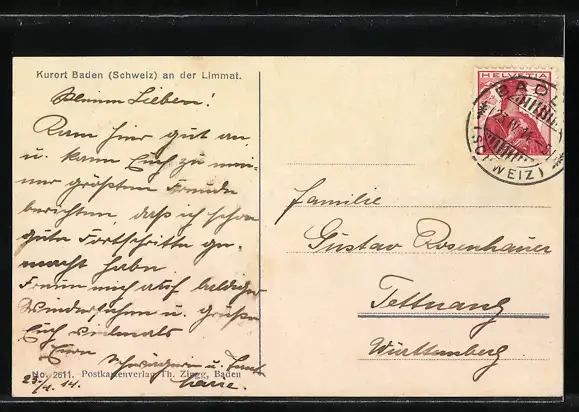 Kurort Baden (Schweiz) an der Limmat.
Meinen Lieben!
Kam hier gut an
u. kann Euch zu mei-
ner größten Freude
berichten, daß ich schon
gute Fortschritte ge-
macht habe.
Freue mich auf baldiges
Wiedersehen u. grüße
Euch vielmals
Eure
Schwägerin u. Tante
No. 2611. Postkartenverlag Th. Zingg, Baden
23. 4. 14.
HELVETIA
BADEN
(SCHWEIZ)
Familie
Gustav Rosenhauer
Tettnang
Württemberg.